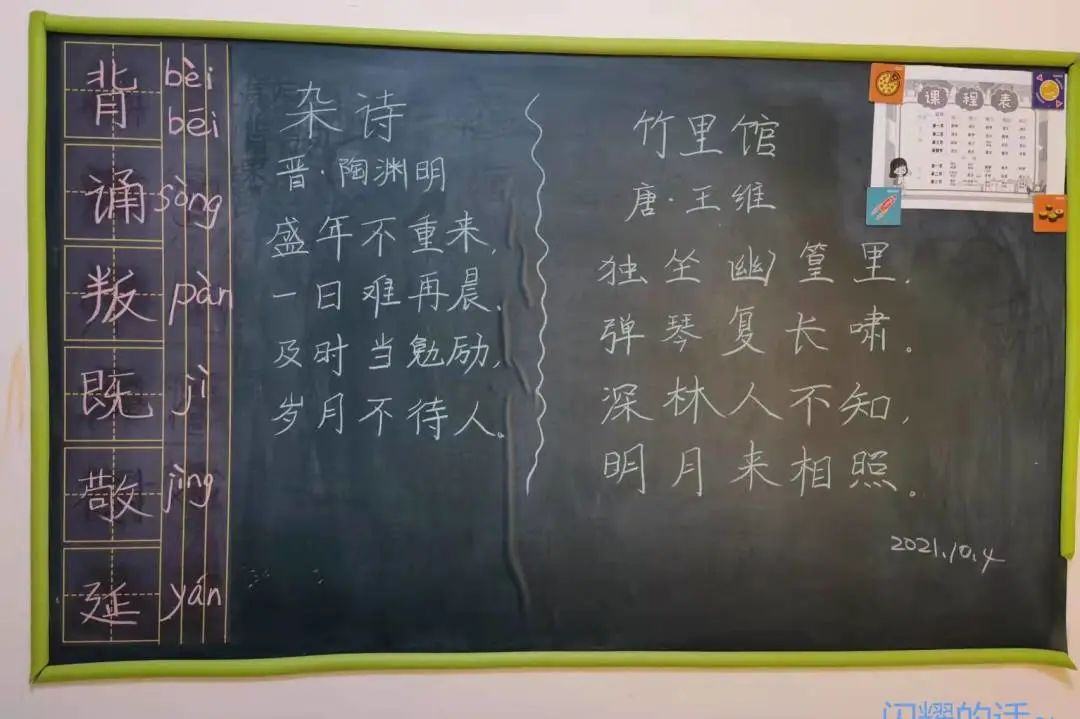 背 bèi
bēi
诵 sòng
叛 pàn
既 jì
敬 jìng
延 yán
杂诗
晋·陶渊明
盛年不重来,
一日难再晨.
及时当勉励,
岁月不待人。
竹里馆
唐·王维
独坐幽篁里.
弹琴复长啸。
深林人不知,
明月来相照。
2021.10.4
课程表
闪耀的话